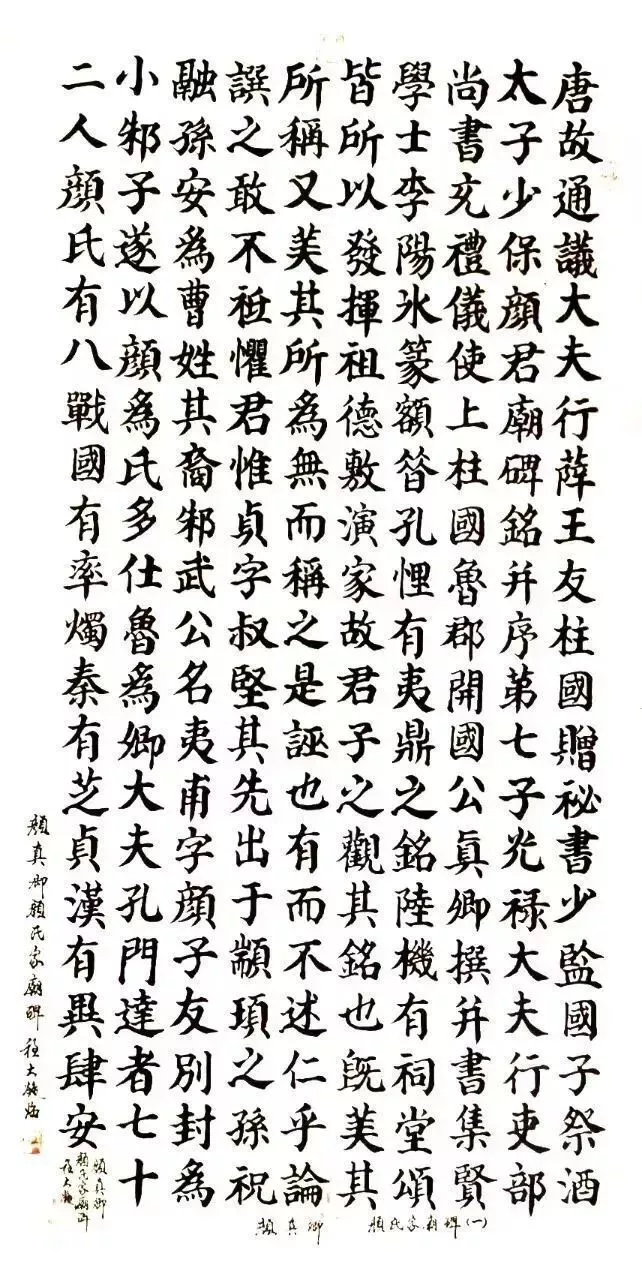 唐故通議大夫行薛王友柱國贈祕書少監國子祭酒
太子少保顏君廟碑銘并序第七子光祿大夫行吏部
尚書充禮儀使上柱國魯郡開國公真卿撰并書集賢
學士李陽冰篆額昝孔悝有夷鼎之銘陸機有祠堂頌
皆所以發揮祖德敷演家故君子之觀其銘也既美其
所稱又美其所為無而稱之是誣也有而不述仁乎論
譔之敢不祗懼君惟貞字叔堅其先出于顓頊之孫祝
融孫安為曹姓其裔邾武公名夷甫字顏子友別封為
小邾子遂以顏為氏多仕魯為卿大夫孔門達者七十
二人顏氏有八戰國有率燭秦有芝貞漢有異肆安
顏真卿顏氏家廟碑 程大臨
顏真卿
顏氏家廟碑
程大
顏真卿 顏氏家廟碑(一)